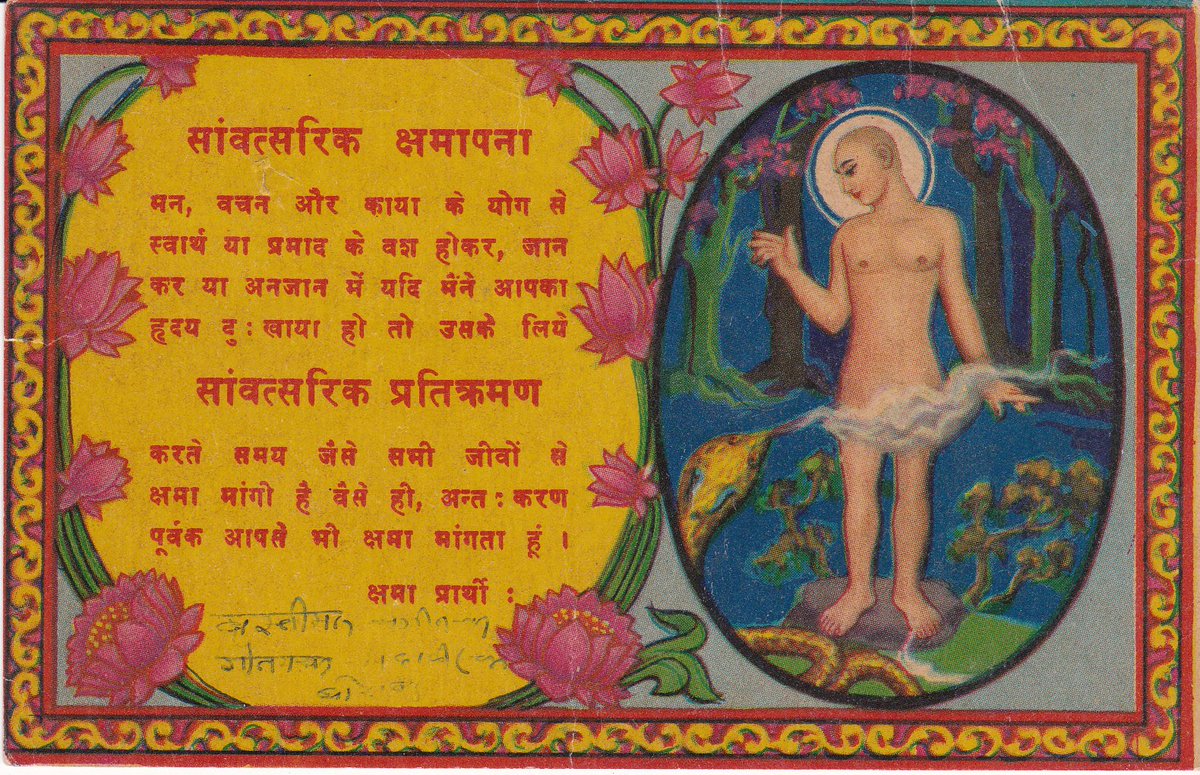 सांवत्सरिक क्षमापना
मन, वचन और काया के योग से
स्वार्थ या प्रमाद के वश होकर, जान
कर या अनजान में यदि मैंने आपका
हृदय दु : खाया हो तो उसके लिये
सांवत्सरिक प्रतिक्रमण
करते समय जैसे सभी जीवों से
क्षमा मांगी है वैसे ही, अन्त : करण
पूर्वक आपसे भी क्षमा मांगता हूं ।
क्षमा प्रार्थी :